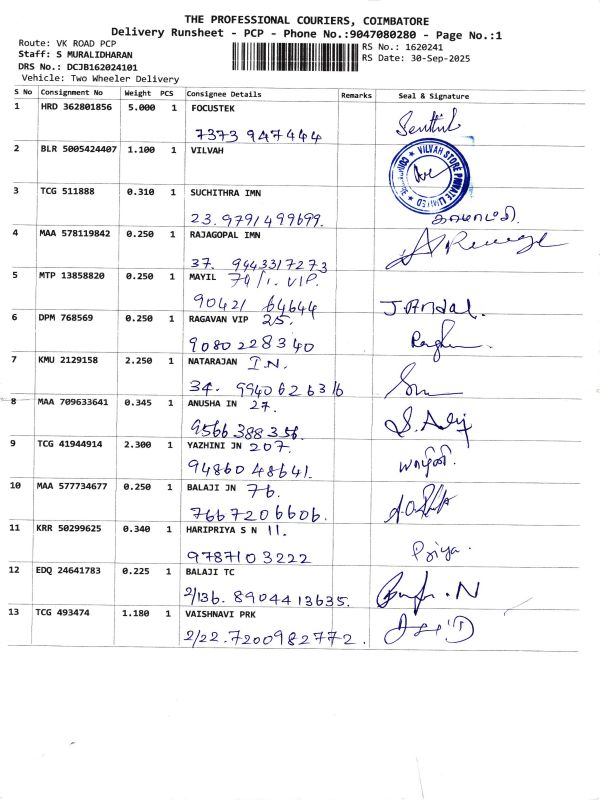 THE PROFESSIONAL COURIERS, COIMBATORE
Delivery Runsheet - PCP - Phone No.:9047080280 - Page No.:1
Route: VK ROAD PCP
RS No.: 1620241
Staff: S MURALIDHARAN
RS Date: 30-Sep-2025
DRS No.: DCJB162024101
Vehicle: Two Wheeler Delivery
S No Consignment No Weight PCS Consignee Details Remarks Seal & Signature
1 HRD 362801856 5.000 1 FOCUSTEK
7373 947444 Senthil
2 BLR 5005424407 1.100 1 VILVAH
VILVAH STORE PRIVATE LIMITED
3 TCG 511888 0.310 1 SUCHITHRA IMN
23. 9791499699.
4 MAA 578119842 0.250 1 RAJAGOPAL IMN
37. 9443317273
5 MTP 13858820 0.250 1 MAYIL 74/1. VIP.
90421 64644 J. Andal.
6 DPM 768569 0.250 1 RAGAVAN VIP 25.
9080228340
7 KMU 2129158 2.250 1 NATARAJAN I.N.
34. 9940626316
8 MAA 709633641 0.345 1 ANUSHA IN 27.
9566388356.
9 TCG 41944914 2.300 1 YAZHINI JN 207.
9486048641. யாழினி.
10 MAA 577734677 0.250 1 BALAJI JN 76.
7667206606.
11 KRR 50299625 0.340 1 HARIPRIYA S N 11.
9787103222 Priya.
12 EDQ 24641783 0.225 1 BALAJI TC
2/136. 8904413635.
13 TCG 493474 1.180 1 VAISHNAVI PRK
2/22. 7200982772.